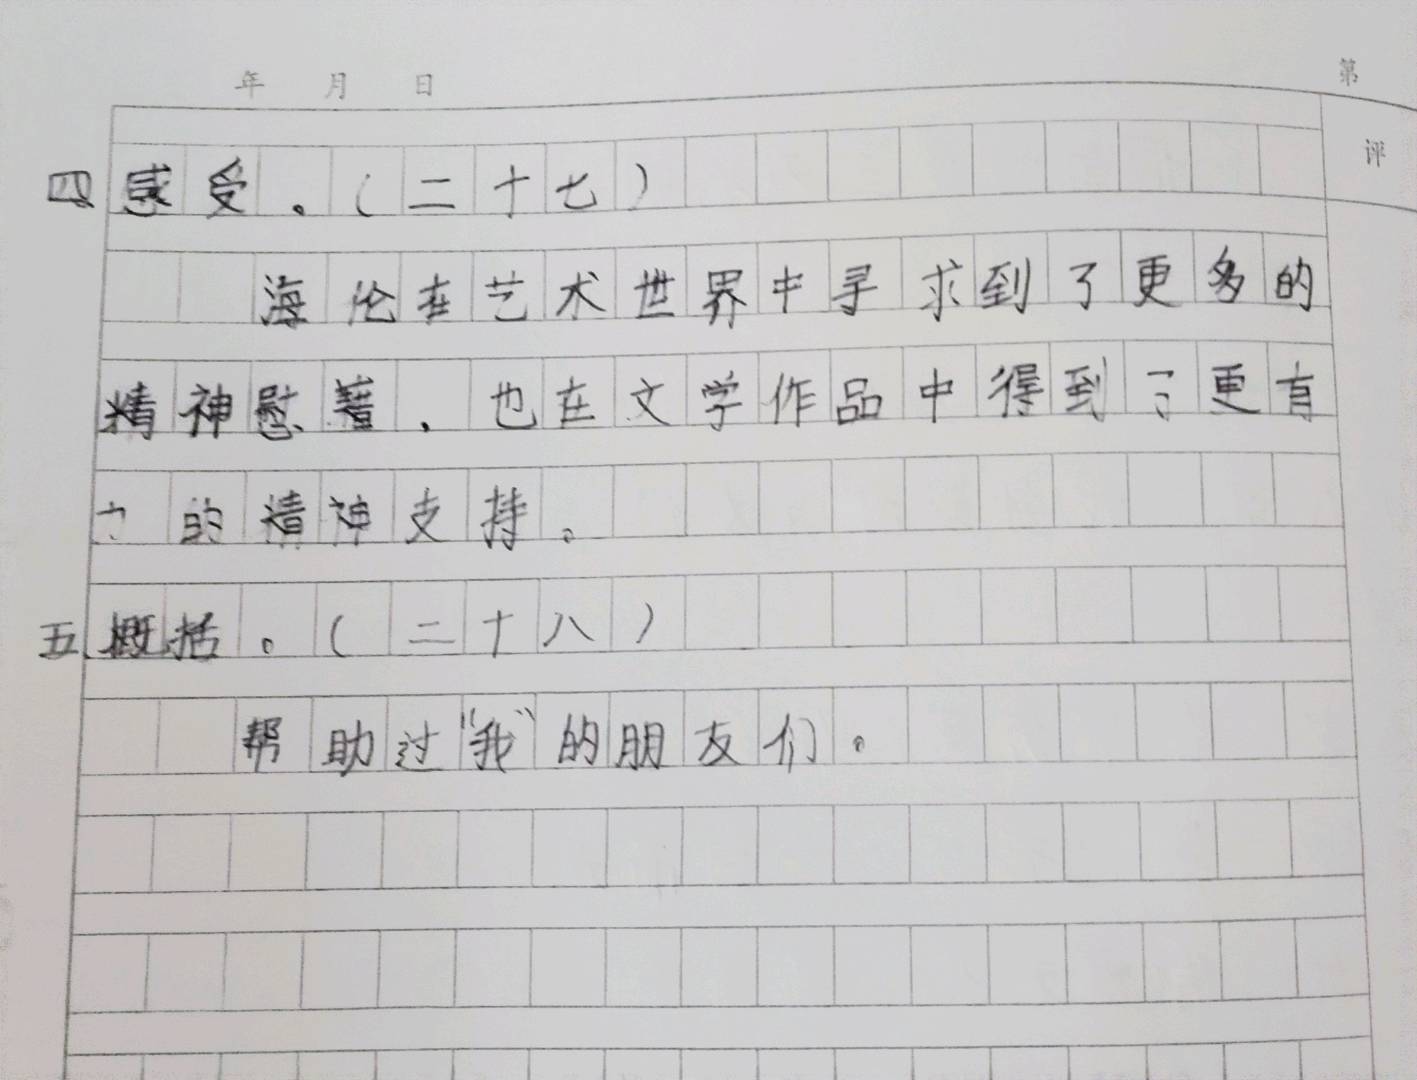 年 月 日 第
评
四感受。(二十七)
海伦在艺术世界中寻求到了更多的
精神慰藉,也在文学作品中得到了更有
力的精神支持。
五概括。(二十八)
帮助过“我”的朋友们。